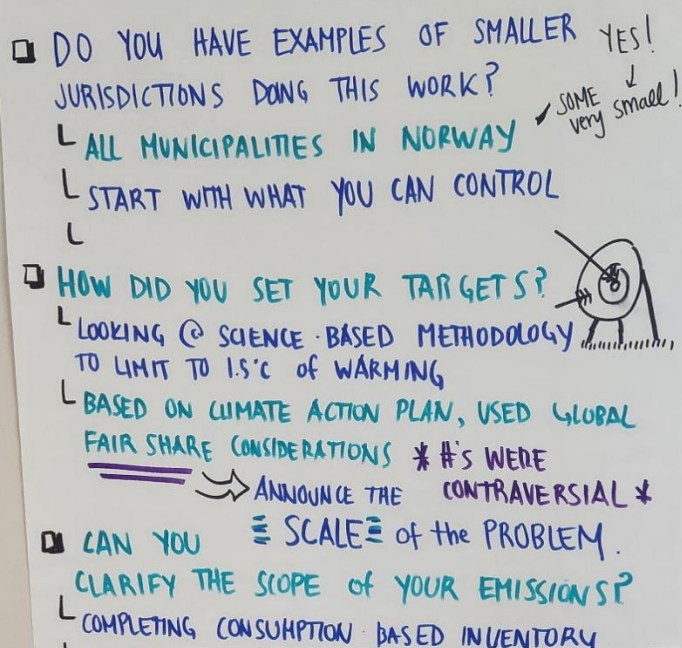 DO YOU HAVE EXAMPLES OF SMALLER YES!
JURISDICTIONS DONG THIS WORK?
SOME very small!
ALL MUNICIPALITIES IN NORWAY
START WITH WHAT YOU CAN CONTROL
HOW DID YOU SET YOUR TARGETS?
LOOKING @ SCIENCE·BASED METHODOLOGY
TO LIMIT TO 1.5°C of WARMING
BASED ON CLIMATE ACTION PLAN, USED GLOBAL
FAIR SHARE CONSIDERATIONS * #'S WERE
CONTRAVERSIAL *
ANNOUNCE THE
SCALE of the PROBLEM.
CAN YOU
CLARIFY THE SCOPE of YOUR EMISSIONS?
COMPLETING CONSUMPTION·BASED INVENTORY